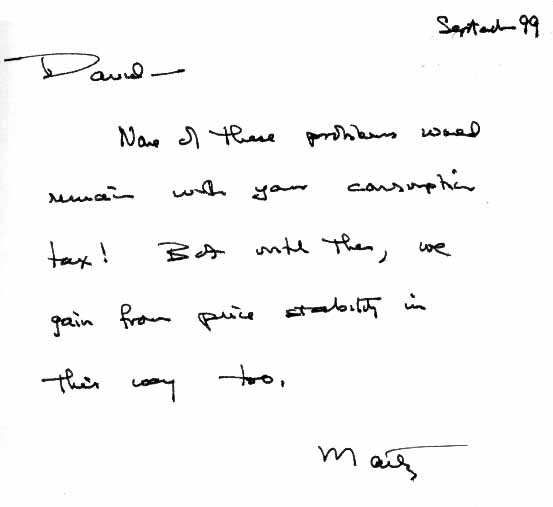 September 99
David —
None of these problems would
remain with your consumption
tax! But until then, we
gain from price stability in
this way too.
Marty